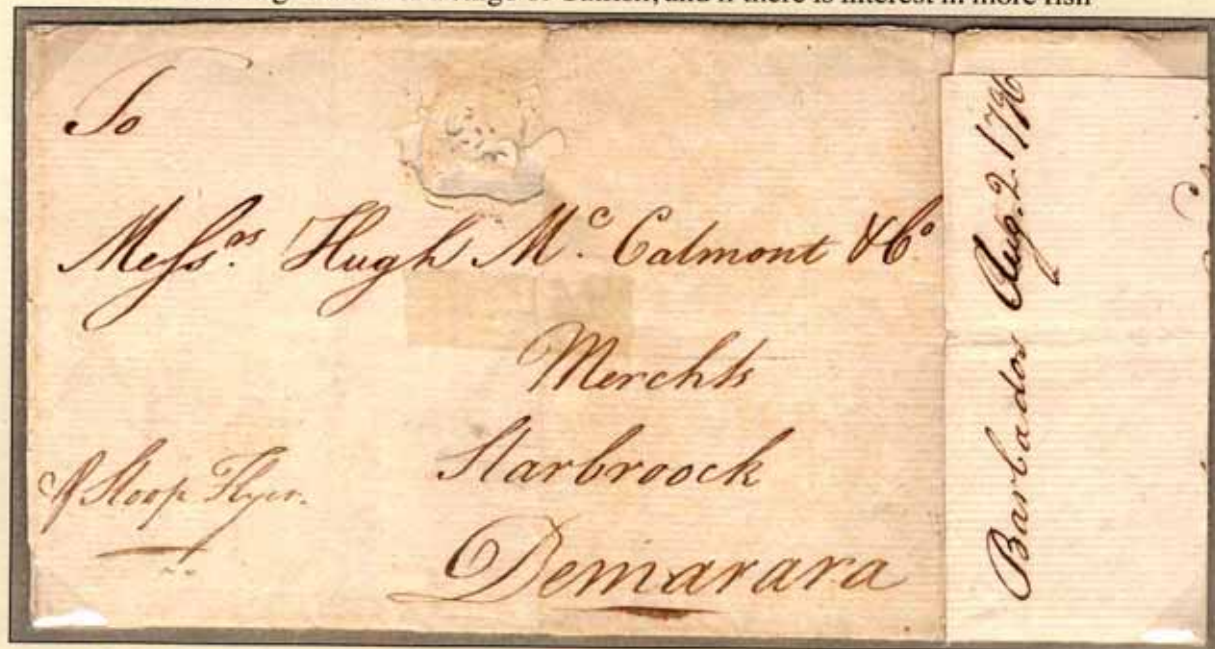 and if there is interest in more fish
To
Messrs. Hugh Mc. Calmont & Co.
Merchts
Starbroock
Demarara
Sloop Flyer.
Barbados Aug. 2. 1796